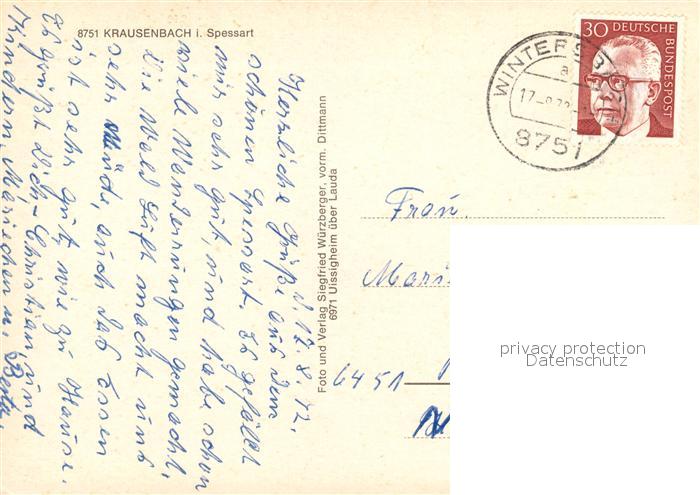 8751 KRAUSENBACH i. Spessart
30 DEUTSCHE
BUNDESPOST
WINTERSB
a
17.-8.72
8751
d. 17.8.72.
Herzliche Grüße aus dem
schönen Spessart. Es gefällt
mir sehr gut, und habe schon
viele Wanderungen gemacht,
die Wald Luft macht uns
sehr Müde, auch das Essen
ist sehr gut, wie zu Hause.
Es grüßt Dich Christian und
Kindern, Mariechen u. Berta.
Foto und Verlag Siegfried Würzberger, vorm. Dittmann
6971 Uissigheim über Lauda
Frau
Mari
6451
privacy protection
Datenschutz